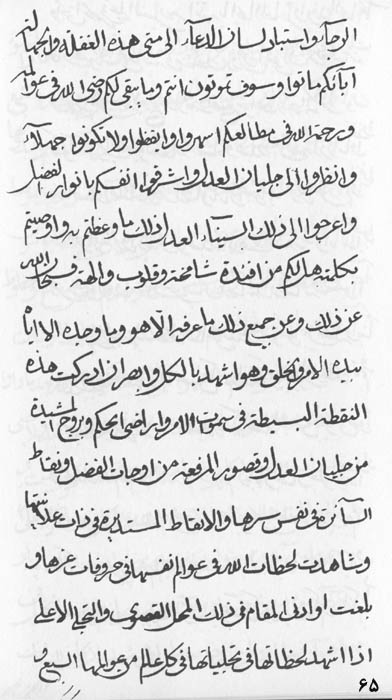 الرجآء واستباد لسان الاعآء الى متى هذه الغفلة والجهالة
آبآئكم ماتوا وسوف تموتون انتم وما يبقى لكم رضى الله فى عوالمه
ورحمة الله فى مطالعكم اسهروا وايقظوا ولا تكونوا جهلآء
وانظروا الى جليان العدل واشرقوا انفسكم بانوار الفضل
واعرجوا الى ذلك السينآء العدل ذلك ما وعظتم به واوصيتم
بكلمته هل لكم من افئدة شامخة وقلوب والهة فسبحان الله
عن ذلك وعن جميع ذلك ما عرفه الا هو وما وجده الا اياه
بيده الامر والخلق وهو اشهد بالكل والامر ان ادركت هذه
النقطة البسيطة فى الامر وارضى الحكم وبروج المشيدة
من جليان العدل وقصور المرفعة من اوجات الفضل ونقاط
السآئرة فى نفس سرها والانقاط المستديرة فى ذات علانيتها
وشاهدت لحظات الله فى عوالم نفسها فى حروفات عزها و
بلغت او ادنى المقام فى ذلك المحل القصوى والتجلى الاعلى
اذا اشهد لحظاتها فى تجلياتها فى كل عالم من عوالمها السبع و
۶۵